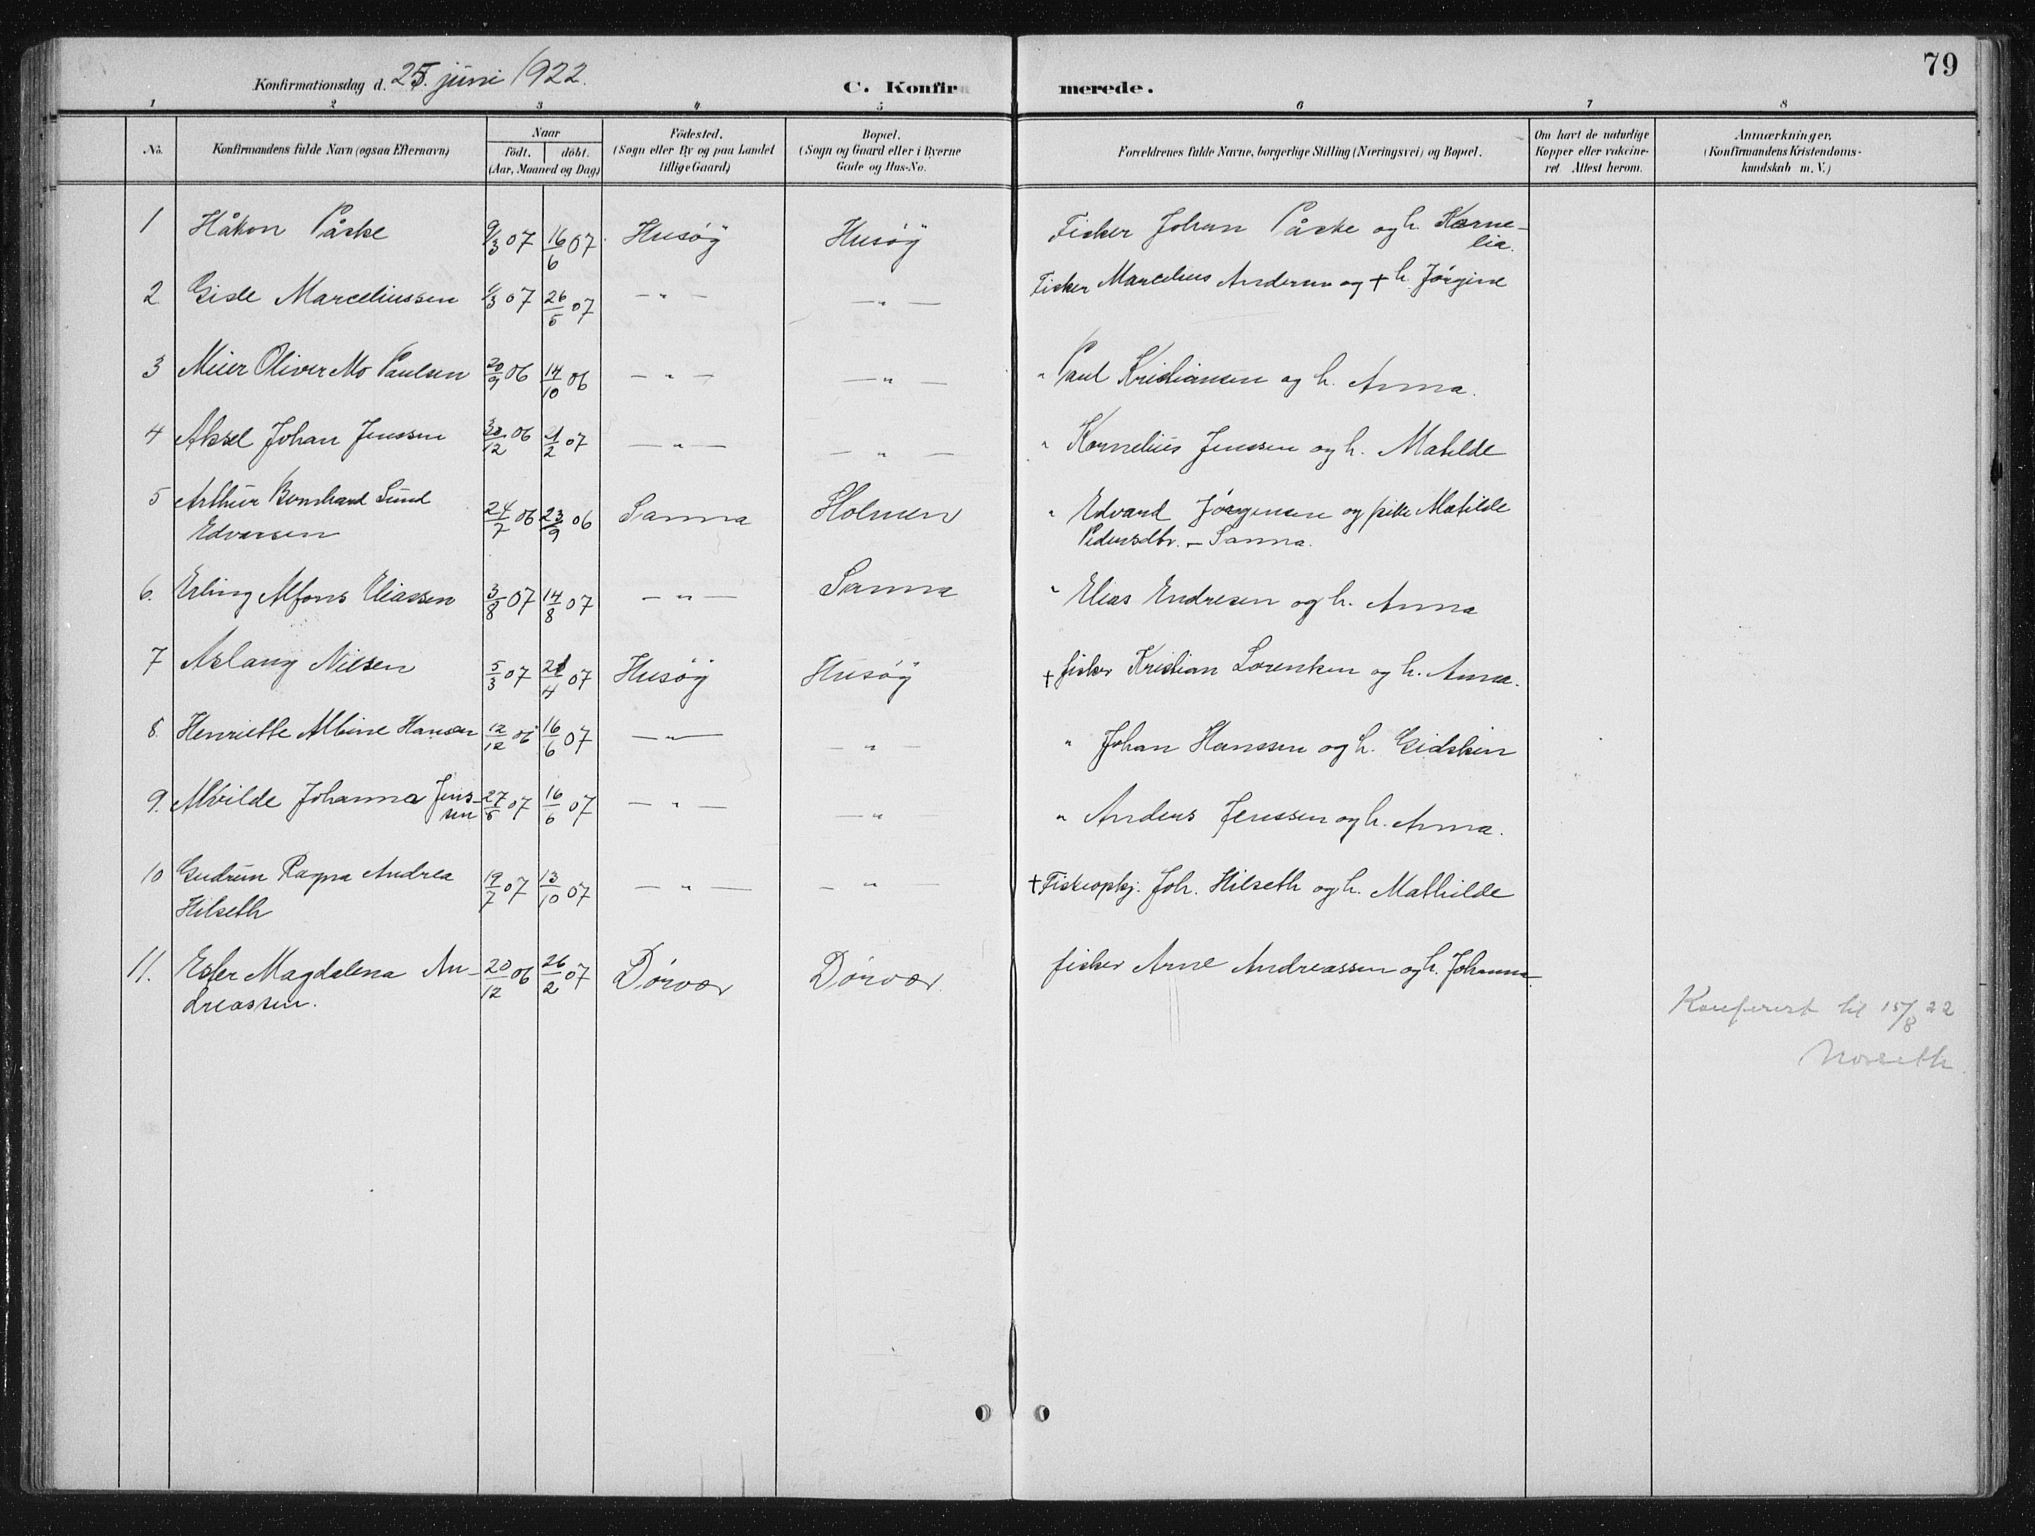 79
Konfirmationsdag d. 25. juni 1922.
C. Konfirmerede.
1 2 3 4 5 6 7 8
No. Konfirmandens fulde Navn (ogsaa Efternavn) Naar født. døbt. (Aar, Maaned og Dag) Fødested. (Sogn eller By og paa Landet tillige Gaard) Bopæl. (Sogn og Gaard eller i Byerne Gade og Hus-No. Forældrenes fulde Navne, borgerlige Stilling (Næringsvei) og Bopæl. Om havt de naturlige Kopper eller vakcineret. Attest herom. Anmærkninger. (Konfirmandens Kristendomskundskab m. V.)
1 Håkon Påske 9/3 07 16/6 07 Husøy Husøy Fisker Johan Påske og h. Kornelia.
2 Gisle Marceliussen 1/3 07 26/5 07 — " — — " — Fisker Marcelius Andersen og + h. Jørgine
3 Meier Oliver Mo Paulsen 20/9 06 14/10 06 — " — — " — " Paul Kristiansen og h. Anna.
4 Aksel Johan Jenssen 30/12 06 1/2 07 — " — — " — " Kornelius Jenssen og h. Matilde
5 Arthur Bernhard Sund
Edvarsen 24/7 06 23/9 06 Sanna Holmen " Edvard Jørgensen og pike Matilde
Pedersdtr. — Sanna.
6. Erling Alfons Eliassen 3/8 07 14/8 07 — " — Sanna " Elias Endresen og h. Anna
7 Aslaug Nilsen 5/3 07 21/4 07 Husøy Husøy + fisker Kristian Lorentsen og h. Anna.
8. Henriette Albine Hansen 12/12 06 16/6 07 — " — — " — " Johan Hanssen og h. Gidskin
9. Alvilde Johanna Jenssen 27/5 07 16/6 07 — " — — " — " Anders Jenssen og h. Anna.
10 Gudrun Ragna Andrea
Hilseth 19/7 07 13/10 07 — " — — " — + Fiskeopkj. Joh. Hilseth og h. Mathilde
11. Ester Magdalena An-
dreassen. 20/12 06 26/2 07 Dørvær Dørvær. fisker Arne Andreassen og h. Johanna
Konferert til 15/8 22